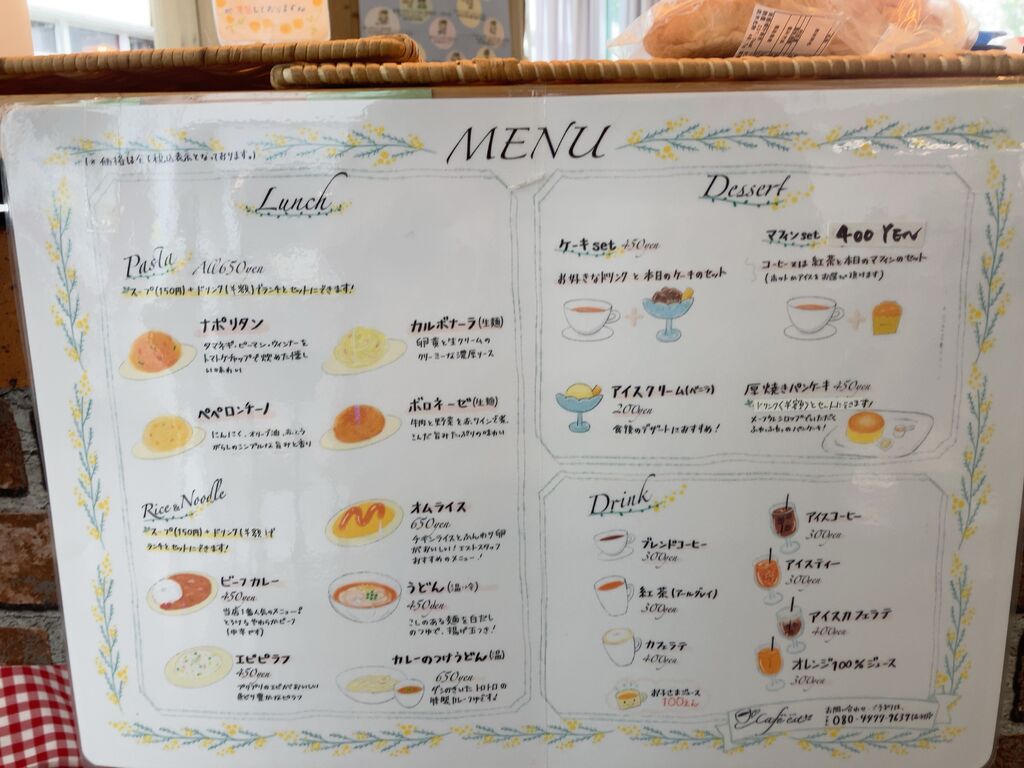 MENU
(※価格は全て税込表示となっております。)
Lunch
Pasta All 650yen
スープ(150円)+ドリンク(半額)でランチセットにできます!
ナポリタン
タマネギ、ピーマン、ウィンナーを
トマトケチャップで炒めた懐し
い味わい
カルボナーラ(生麺)
卵黄と生クリームの
クリーミーな濃厚ソース
ペペロンチーノ
にんにく、オリーブ油、赤とう
がらしのシンプルな旨みと香り
ボロネーゼ(生麺)
牛肉と野菜を赤ワインで煮
こんだ旨みたっぷりの味わい
Rice & Noodle
スープ(150円)+ドリンク(半額)で
ランチセットにできます!
オムライス
650yen
チキンライスとふんわり卵
がおいしい!
おすすめのメニュー!
ビーフカレー
450yen
当店1番人気のメニュー!
とろけるやわらかビーフ
うどん(温・冷)
450yen
こしのある麺を白だし
のつゆで、揚げ玉つき!
エビピラフ
450yen
プリプリのエビがおいしい
カレーのつけうどん(温)
650yen
ダシのきいたトロトロの
特製カレーつゆです!
Dessert
ケーキset 450yen
お好きなドリンクと本日のケーキのセット
マフィンset 400 YEN
コーヒー又は紅茶と本日のマフィンのセット
(ホットかアイスをお選び頂けます)
アイスクリーム(バニラ)
200yen
食後のデザートにおすすめ!
厚焼きパンケーキ 450yen
ドリンク(半額)とセットにできます!
メープルシロップでいただく
ふわふわのパンケーキ!
Drink
ブレンドコーヒー
300yen
紅茶(アールグレイ)
300yen
カフェラテ
400yen
お子さまジュース
100えん
アイスコーヒー
300yen
アイスティー
300yen
アイスカフェラテ
400yen
オレンジ100%ジュース
300yen
Café
お問い合わせ・ご予約は、